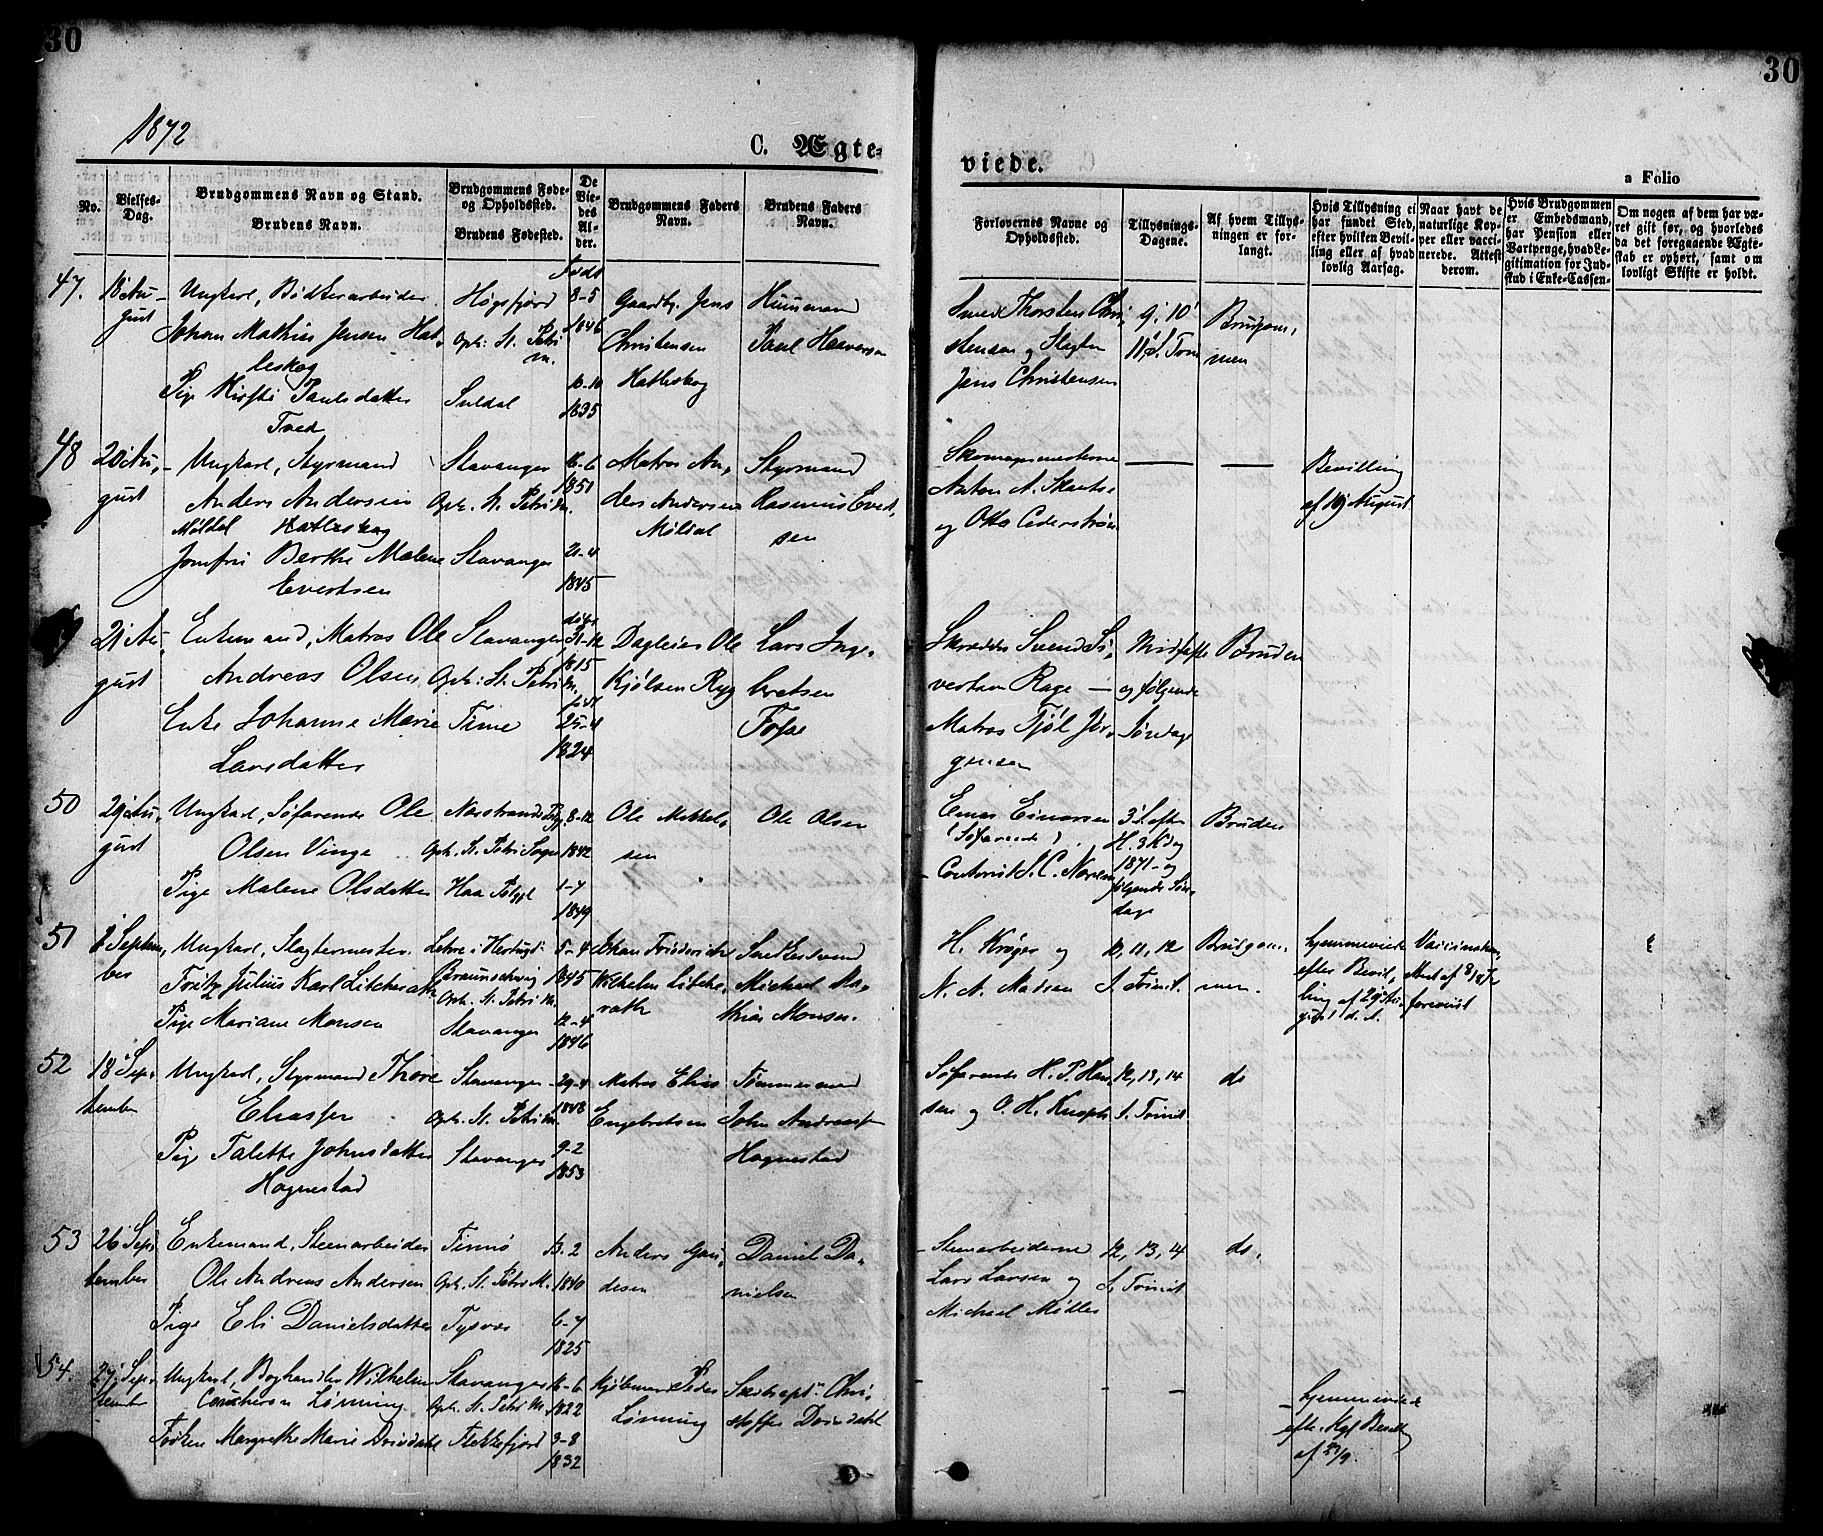 30
30
1872
C. Ægte-
viede.
a Folio
No.
Vielses-
Dag.
Brudgommens Navn og Stand.
Brudens Navn.
Brudgommens Føde-
og Opholdssted.
Brudens Fødested.
De
Vie-
des
Al-
der.
Brudgommens Faders
Navn.
Brudens Faders
Navn.
Forlovernes Navne og
Opholdssted.
Tillysnings-
Dagene.
Af hvem Tillys-
ningen er for-
langt.
Hvis Tillysning ei
har fundet Sted,
efter hvilken Bevil-
ling eller af hvad
lovlig Aarsag.
Naar havt de
naturlige Kop-
per eller vacci-
nerede. Attest
derom.
Hvis Brudgommen
er Embedsmand,
har Pension eller
Vartpenge, hvad Le-
gitimation for Ind-
skud i Enke-Cassen.
Om nogen af dem har væ-
ret gift før, og hvorledes
da det foregaaende Ægte-
skab er ophørt, samt om
lovligt Skifte er holdt.
47.
18 Au-
gust
Ungkarl, Bødkerarbeider
Johan Mathias Jensen Hat-
leskog
Pige Kirsti Paulsdatter
Tved
Høgsfjord
Oph: St. Petri
M.
Suldal
Født
8-5
1846
10-10
1835
Gaardbr. Jens
Christensen
Hatleskog
Huusmand
Paul Haaversen
Smed Thorsten Chri-
stensen og Slagter
Jens Christensen
9, 10,
11 S. Trin
Brudgom-
men
48
20 Au-
gust
Ungkarl, Styrmand
Anders Andersen
Møldal Hatleskog
Jomfru Berthe Malene
Evertsen
Stavanger
Oph. St. Petri M.
Stavanger
16-6
1851
21-4
1845
Matros An-
ders Andersen
Mildal
Styrmand
Rasmus Evert-
sen
Skomagermesterne
Anton A. Skaar
og Otto Cederstrøm
Bevilling
af 19 August
21 Au-
gust
Enkemand, Matros Ole
Andreas Olsen
Enke Johanne Marie
Larsdatter
Stavanger
Oph: St. Petri M.
Time
døbt
31-12
1815
født
25-4
1824
Dagleier Ole
Kjølsen Ryg
Lars Inge-
bretsen
Fosse
Skrædder Svend Si-
vertsen Rage —
Matros Tjøl Jør-
gensen
Midfaste
og følgende
Søndage
Bruden
50
29 Au-
gust
Ungkarl, Søfarende Ole
Olsen Vinge
Pige Malene Olsdatter
Nærstrands Pgj.
Oph. St. Petri Sogn
Haa Prgjl
8-12
1842
1-7
1849
Ole Mikkel-
sen
Ole Olsen
Einar Einarsen
(Søfarende)
Contorist S. C. Norem
3 S. efter
H. 3 K. dg
1871 - og
følgende Søn-
dage
Bruden
51
1 Septem-
ber
Ungkarl, Slagtermester
Fritz Julius Karl Litcherath
Pige Mariane Monsen
Lehre i Hertugd:
Braunschweig
Oph. St. Petri M.
Stavanger
5-4
1845
12-4
1846
Johan Friederich
Wilhelm Litche-
rath
Michael Ma-
thias Monsen.
H. Krøger og
N. A. Madsen
10, 11, 12
S. Trinit.
Brudgom-
men.
hjemmeviede
efter Bevil-
ling af 29 Au-
gust d. A.
Vaccinations-
Attest af 8/1 47
foreviist
52
18 Sep-
tember
Ungkarl, Styrmand Thore
Eliassen
Pige Talette Johnsdatter
Hognestad
Stavanger
Oph. St. Petri M.
Stavanger
29-4
1848
9-2
1853
Matros Elias
Engebretsen
Tømmermand
John Andreassen
Hognestad
Søfarende H. P. Han-
sen og O. H. Knophs
12, 13, 14
S. Trinit
do
53
26 Sep-
tember
Enkemand, Steenarbeider
Ole Andreas Andersen
Pige Eli Danielsdatter
Finnø
Oph. St. Petri M.
Tysvær
13-2
1840
6-7
1825
Anders Gau-
desen
Daniel Da-
nielsen
Steenarbeiderne
Lars Larsen og
Michael Møller
12, 13, 14
S. Trinit
do.
54.
27 Sep-
tember
Ungkarl, Boghandler Wilhelm
Lønning
Frøken Margrethe Marie Dvisdahl
Stavanger
Oph. St. Petri M.
Flekkefjord
16-6
1822
3-8
1832
Kjøbmand Peder
Lønning
Skibscapt. Chri-
stoffer Dvisdahl
-
-
hjemmeviet
efter Kgl Bevill
af 21/9.